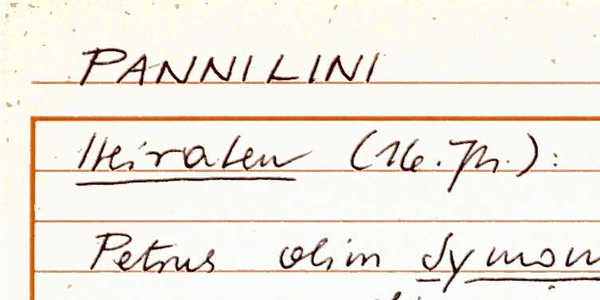 PANNILINI
Heiraten (16. Jh.):
Petrus olim Symon